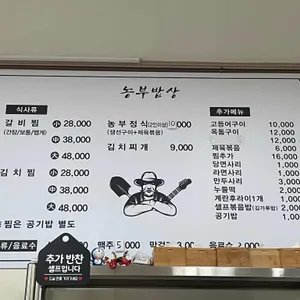 농부밥상
식사류
갈비찜 小 28,000
(간장/보통/맵게) 中 38,000
大 48,000
김치찜 小 28,000
中 38,000
大 48,000
찜은 공기밥 별도
농부정식(2인이상)
(생선구이+제육볶음)
김치찌개 9,000
추가메뉴
고등어구이 10,000
옥돔구이 12,000
제육볶음 12,000
찜추가 16,000
당면사리 2,000
라면사리 1,000
만두사리 3,000
누들떡 2,000
계란후라이1개 1,000
셀프볶음밥(김가루밥) 2,000
공기밥 1,000
류/음료수
맥주 5,000
음료수 2,000
추가 반찬
셀프입니다